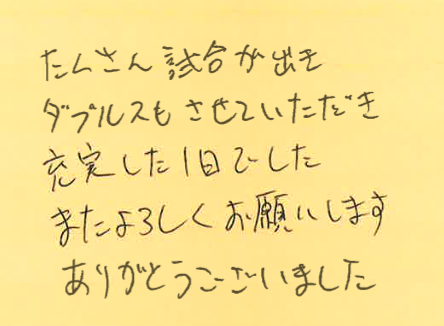 たくさん試合が出き
ダブルスもさせていただき
充実した1日でした
またよろしくお願いします
ありがとうございました